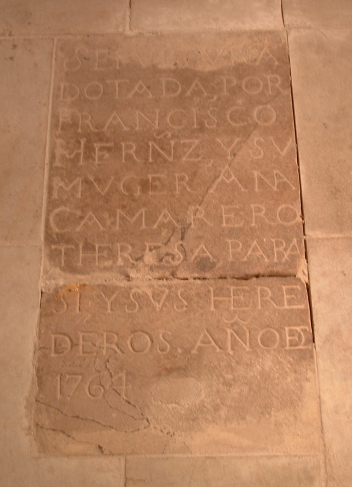 DOTADA POR
FRANCISCO
HERÑZ Y SU
MUGER ANA
CAMARERO
THERESA PARA
SI Y SUS HERE
DEROS. AÑO DE
1764